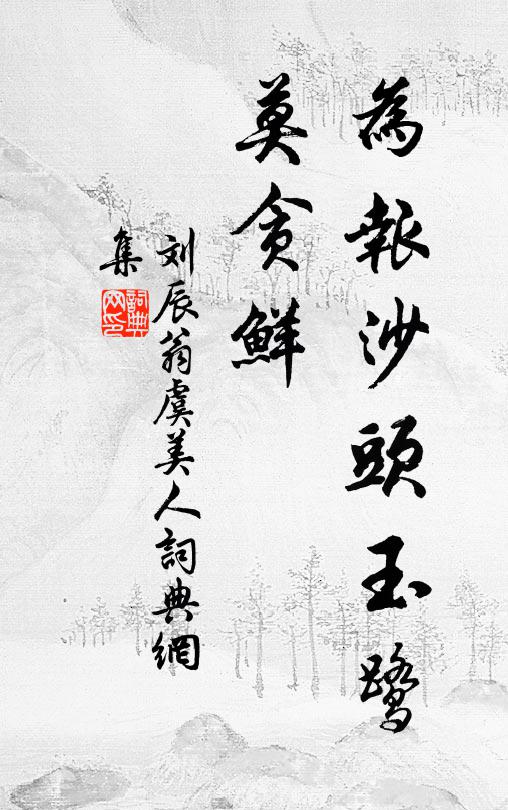 為報沙頭玉鷺
莫貪鮮
刘辰翁虞美人詞典網
集
詞典
网印